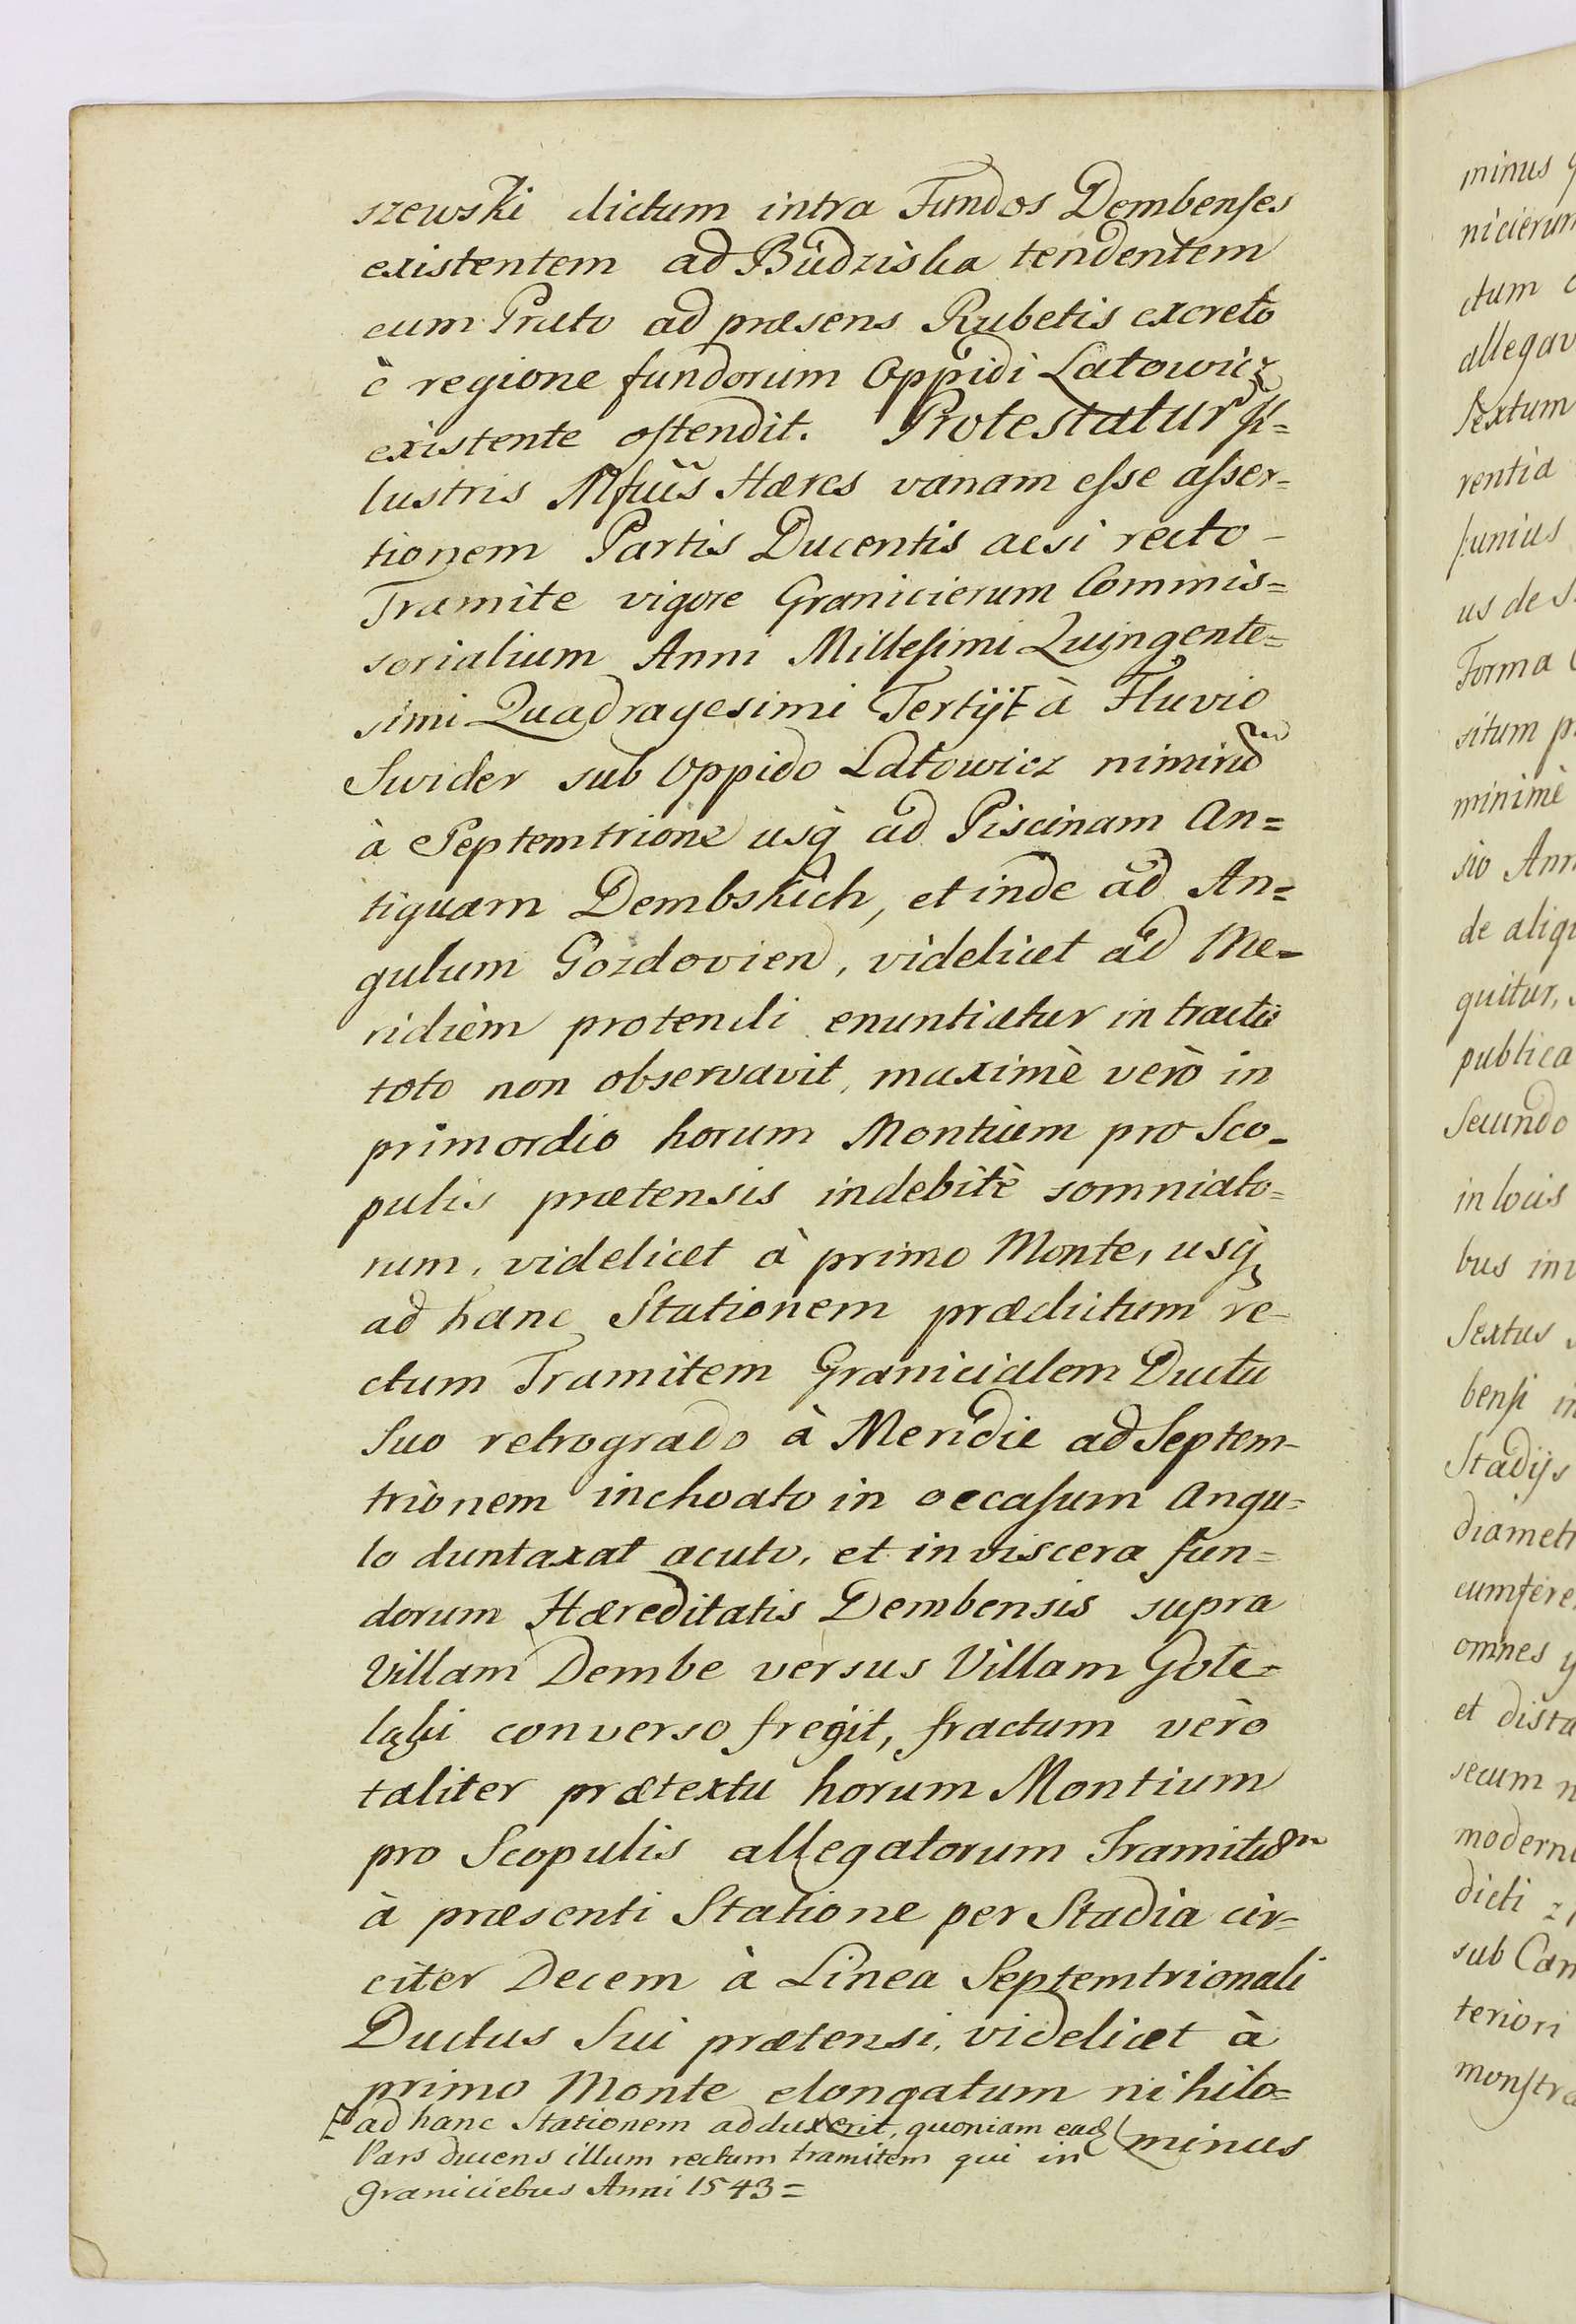 szewski dictum intra Fundos Dembenses
existentem ad Budziska tendentem
cum Prato ad præsens Rubetis excreto
è regione fundorum Oppidi Latowicz
existente ostendit. Protestatur Il=
lustris Mfcus Hæres vanam esse asser=
tionem Partis Ducentis acsi recto -
Tramite vigore Granicierum Commis=
sorialium Anni Millesimi Quingente=
simi Quadragesimi Tertij [ à Fluvio
Swider sub Oppido Latowicz nimirũ
à Septemtrione usq ad Piscinam An=
tiquam Dembskich, et inde ad An=
gulum Gozdovien, videlicet ad Me=
ridiem protendi enuntiatur in tractu
toto non observavit, maximè verò in
primordio horum Montium pro Sco-
pulis prætensis indebitè somniato=
rum, videlicet à primo Monte, usq
ad hanc Stationem prædictum re-
ctum Tramitem Granicialem Ductu
Suo retrogrado à Meridie ad Septem-
trionem inchoato in occasum Angu=
lo duntaxat acuto, et in viscera fun=
dorum Hæreditatis Dembensis supra
Villam Dembe versus Villam Gote=
ląki converso fregit, fractum verò
taliter prætextu horum Montium
pro Scopulis allegatorum Tramitem
à præsenti Statione per Stadia cir=
citer Decem à Linea Septemtrionali
Ductus Sui prætensi, videlicet à
primo Monte elongatum nihilo=
minus
[ ad hanc Stationem adduxerit, quoniam ead
Pars ducens illum rectum tramitem qui in
Graniciebus Anni 1543 =
minus
nicierum
ctum
allegav
Sextum
rentia
us de
Forma
situm
minimè
sio
de
quitur,
publica
Secundo
in locis
bus
Sextus
bensi
Stadijs
diamet
cumfere
omnes
et dista
secum
modern
dicti
sub
teriori
monstra